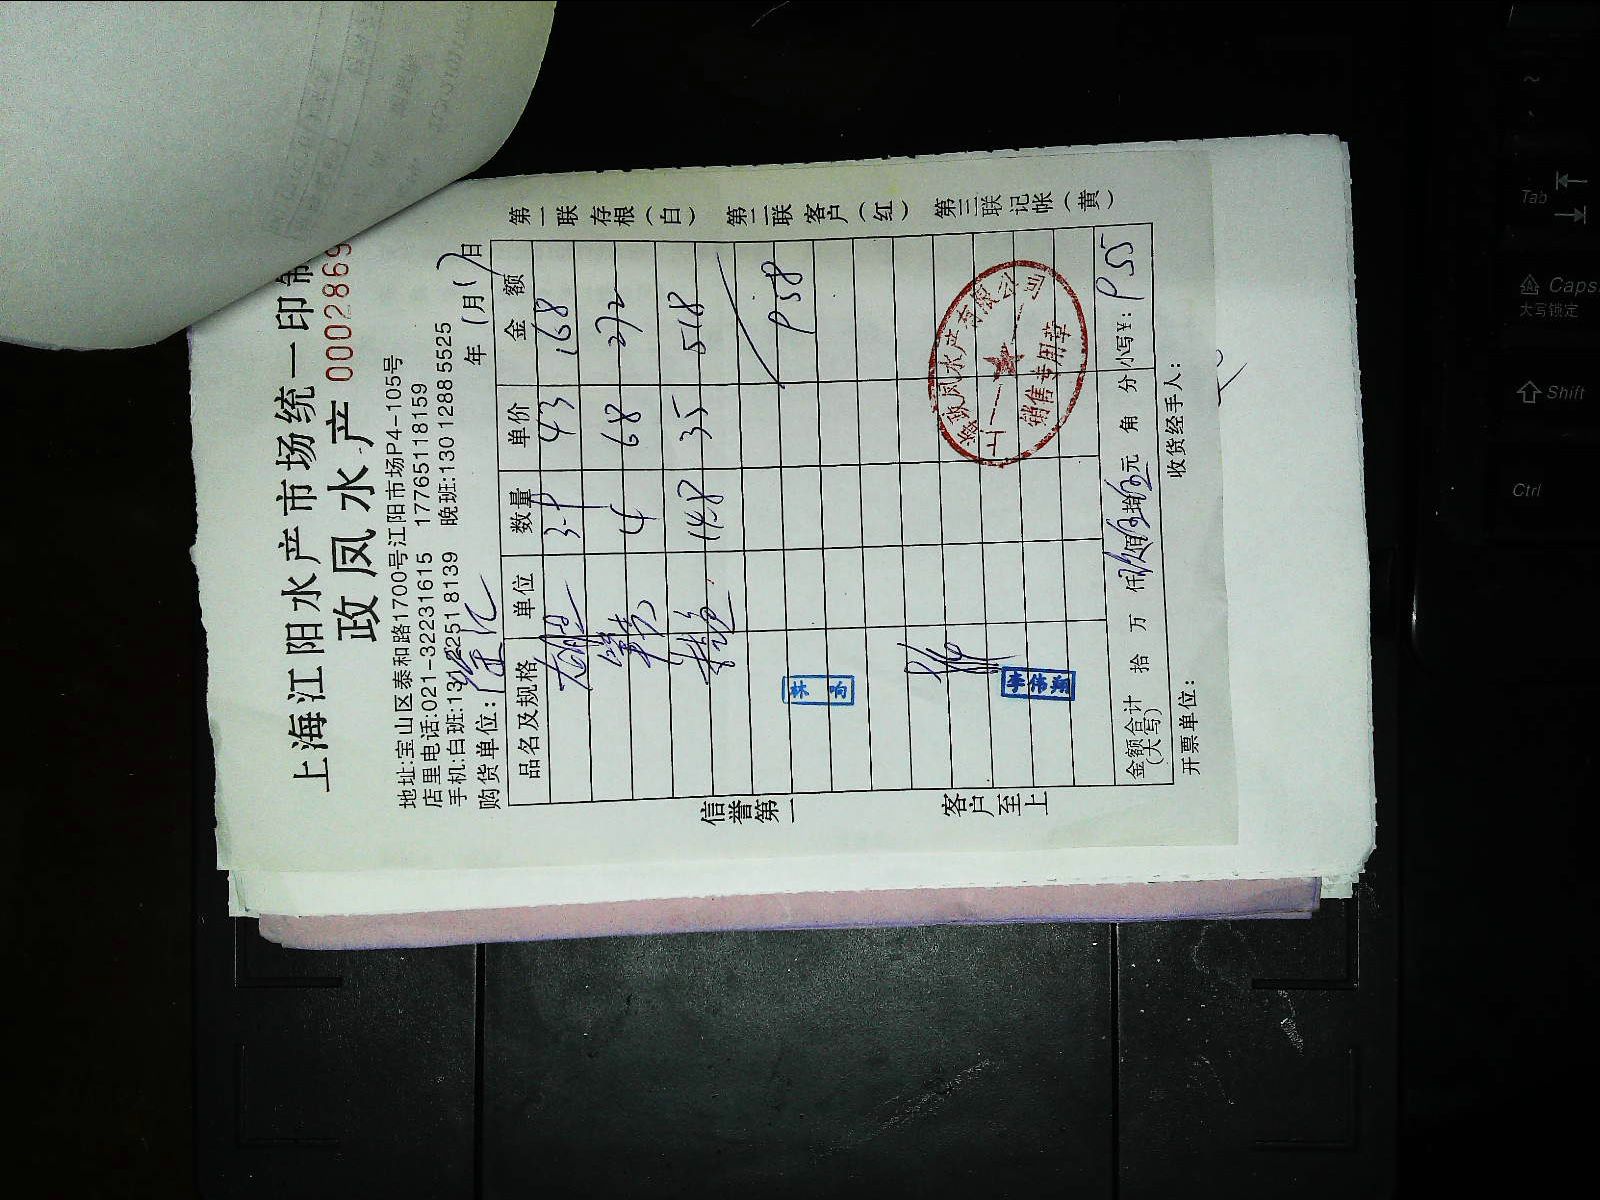 上海江阳水产市场统一印制
政凤水产 0002869
地址:宝山区泰和路1700号江阳市场P4-105号
店里电话:021-32231615 17765118159
手机:白班:131 2251 8139 晚班:130 1288 5525
购货单位: 年 1月17日
品名及规格 单位 数量 单价 金额
43 168
4 68 272
14.8 35 518
958
林
李伟翔
上海政凤水产有限公司
销售专用章
金额合计(大写) 拾 万 仟 玖佰伍拾伍元 角 分 小写¥: 955
开票单位: 收货经手人:
第一联存根(白) 第二联客户(红) 第三联记帐(黄)
信誉第一 客户至上
~
Tab
Caps
大写锁定
Shift
Ctrl